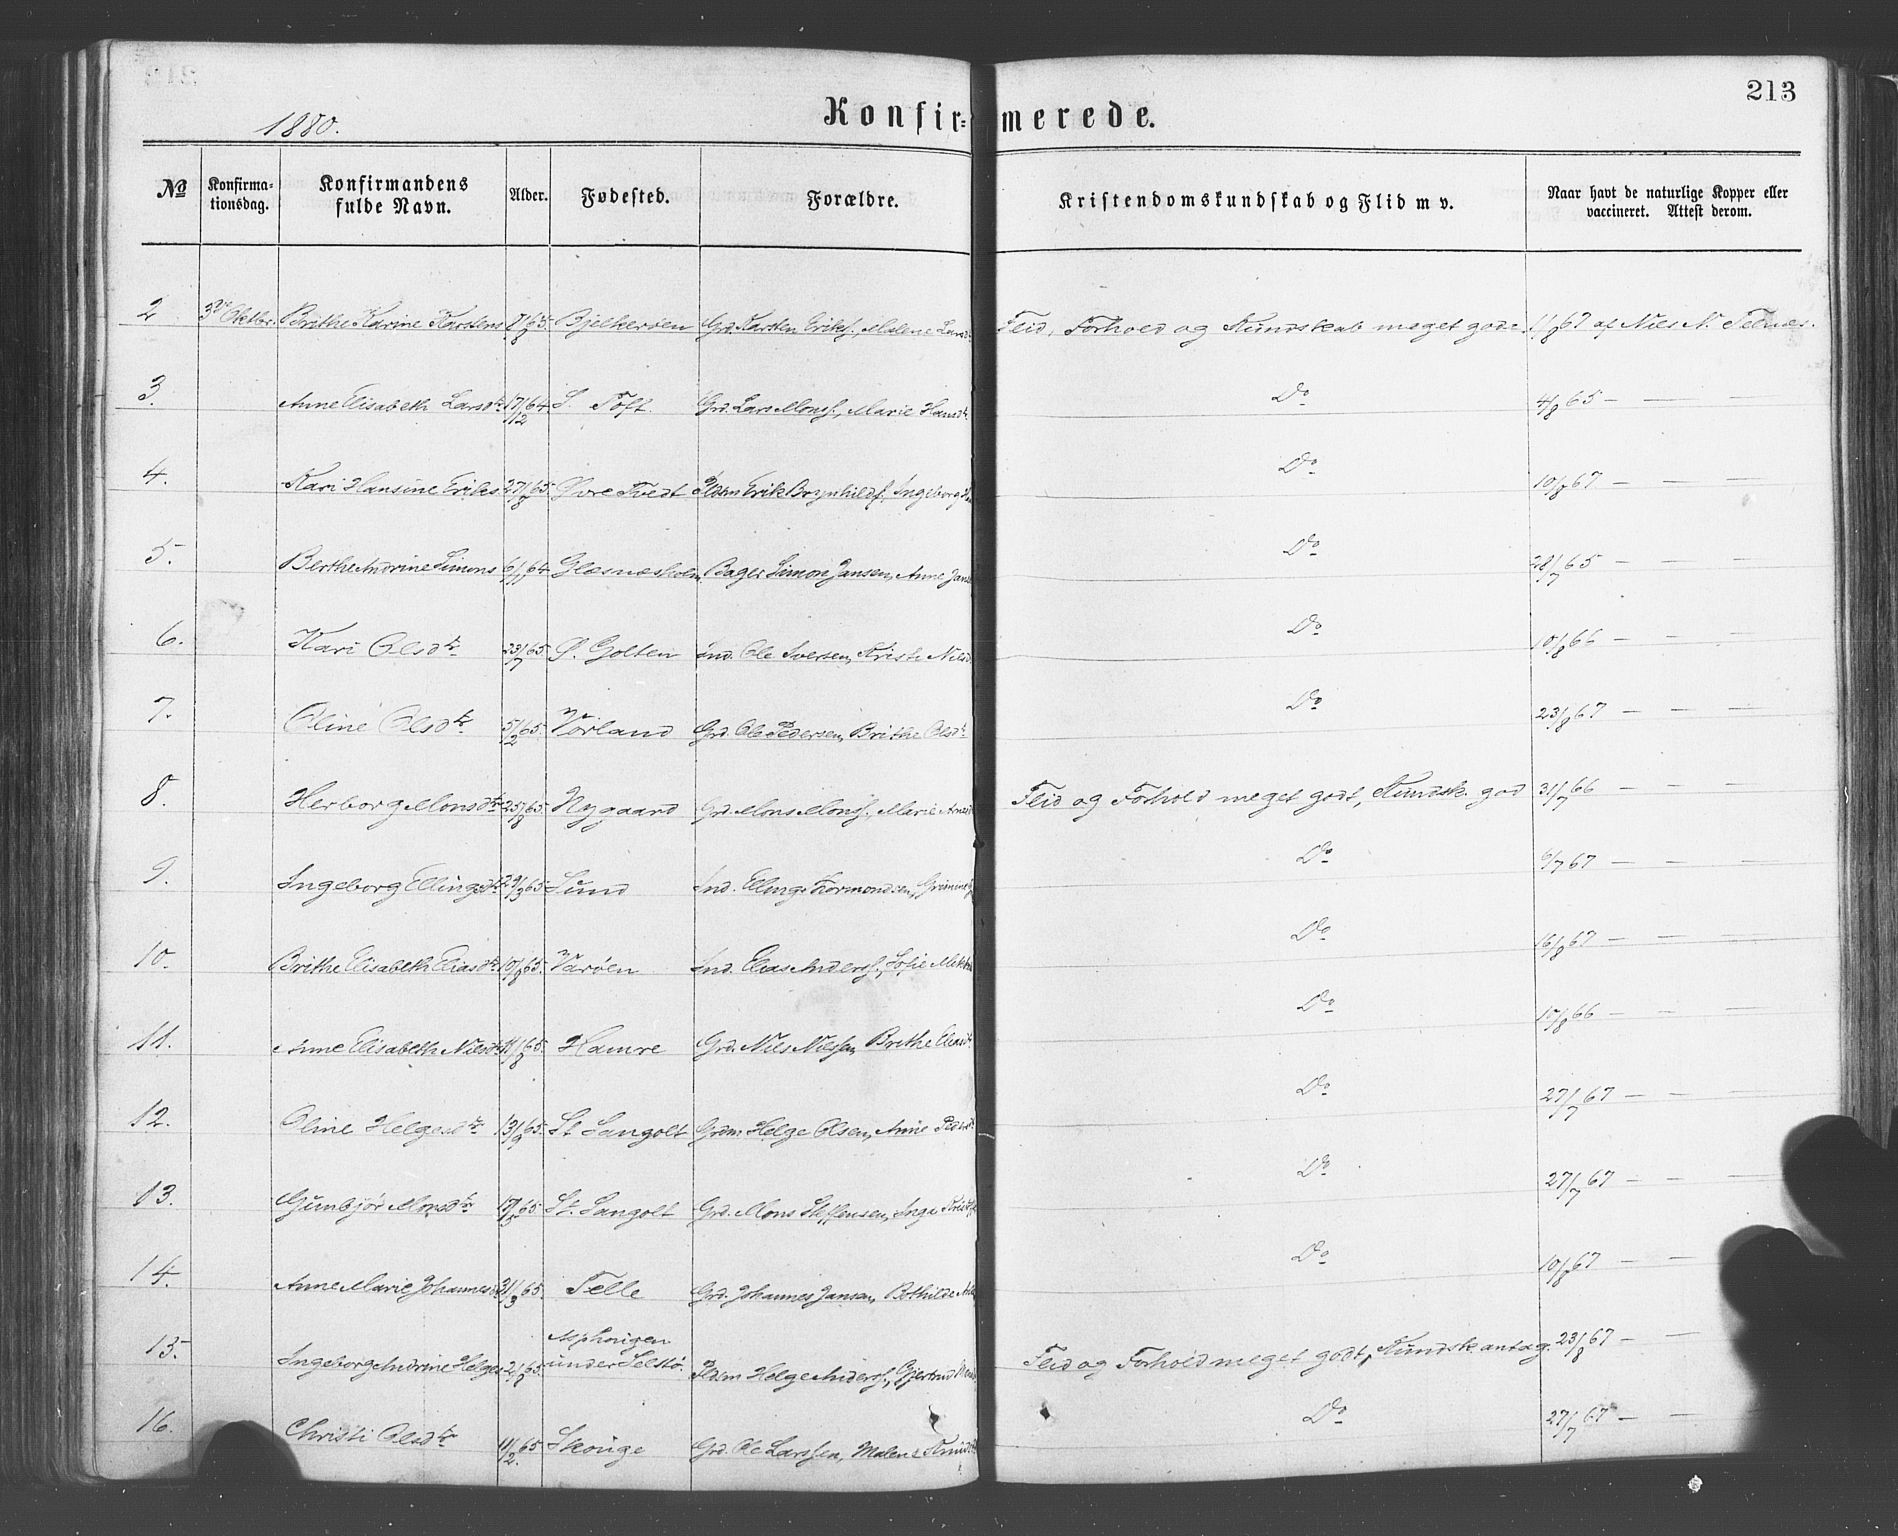 213
1880.
Konfir-merede.
№ Konfirma-tionsdag. Konfirmandens fulde Navn. Alder. Fødested. Forældre. Kristendomskundskab og Flid m v. Naar havt de naturlige Kopper eller vaccineret. Attest derom.
2 3die Oktbr. Brithe Karine Karstens 65. Bjelkerøen Grd. Karsten Eriks., Malene Larsdt. Flid, Forhold og Kundskab meget gode. 11/8 67 af Niels N. Telnes.
3. Anne Elisabeth Larsdtr 17/12 64. S. Toft. Grd. Lars Monss., Marie Hansdt. Do 4/8 65 — — —
4. Kari Hansine Eriks 27/8 65. Øvre Tvedt Pldsm Erik Brynhilds., Ingeborg Do 10/8 67 — — —
5. Berthe Andrine Simons 6/11 64. Glæsnæsholm, Bager Simon Jansen, Anne Jans Do 28/7 65 — — —
6. Kari Olsdtr 23/7 65. Ø. Golten Ind. Ole Iversen, Kristi Nilsd Do 10/8 66 — — —
7. Oline Olsdtr 5/2 65. Vorland Grd. Ole Pedersen, Brithe Olsdt Do 23/8 67 — — —
8. Herborg Monsdtr 25/8 65. Nygaard Grd. Mons Monss., Marie Flid og Forhold meget godt, Kundsk. god 31/7 66 — — —
9. Ingeborg Ellingsdtr 29/3 65 Sund Ind. Elling Thormondsen, Do 6/7 67 — — —
10. Brithe Elisabeth Eliasdtr 10/8 65. Varøen Ind. Elias Anderss., Sofie Do 16/8 67 — — —
11. Anne Elisabeth Nilsdtr 11/8 65. Hamre Grd. Nils Nilssen, Brithe Eliasdt. Do 10/8 66 — — —
12. Oline Helgesdtr 13/9 65. St Sangolt Grdm. Helge Olsen, Anne Do 27/7 67 — — —
13. Gunbjør Monsdtr 65. St. Sangolt Grd. Mons Steffensen, Inga Do 27/7 67 — — —
14. Anne Marie Johannesdt 31/3 65. Telle Grd. Johannes Jansen, Bothilde Do 10/8 67 — —
15. Ingeborg Andrine Helges 2/8 65. Asphougen under Selstø. Pldsm Helge Anderss., Gjertrud Flid og Forhold meget godt, Kundsk. antag. 23/8 67 — —
16. Christi Olsdtr 11/2 65. Skouge Grd. Ole Larssen, Malene Do 27/7 67 — —